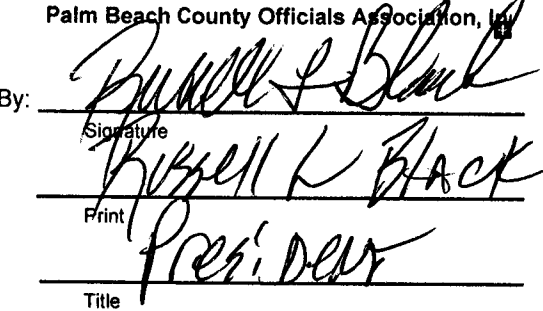 Palm Beach County Officials Association, In
By: Russell L Black
Signature
Russell L Black
Print
President
Title